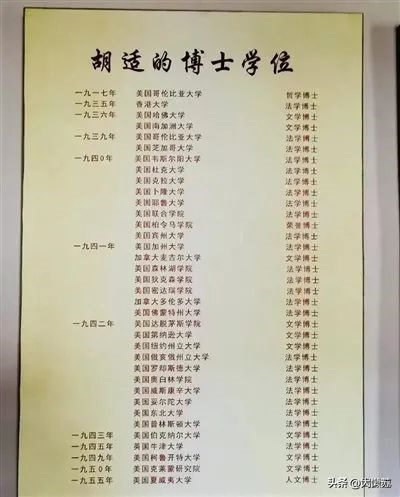 胡适的博士学位
一九一七年 美国哥伦比亚大学 哲学博士
一九三五年 香港大学 法学博士
一九三六年 美国哈佛大学 文学博士
美国南加洲大学 文学博士
一九三九年 美国哥伦比亚大学 法学博士
美国芝加哥大学 法学博士
一九四0年 美国韦斯尔阳大学 法学博士
美国杜克大学 法学博士
美国克拉大学 法学博士
美国卜隆大学 法学博士
美国耶鲁大学 法学博士
美国联合学院 法学博士
美国柏令马学院 荣誉博士
美国宾州大学 法学博士
一九四一年 美国加州大学 法学博士
加拿大麦吉尔大学 文学博士
美国森林湖学院 法学博士
美国狄克森学院 法学博士
美国密达瑞学院 法学博士
加拿大多伦多大学 法学博士
美国佛蒙特州大学 法学博士
一九四二年 美国达脱茅斯学院 文学博士
美国第纳逊大学 文学博士
美国纽约州立大学 文学博士
美国俄亥俄州立大学 法学博士
美国罗却斯德大学 法学博士
美国奥白林学院 法学博士
美国威斯康辛大学 法学博士
美国妥尔陀大学 法学博士
美国东北大学 法学博士
美国普林斯顿大学 法学博士
一九四三年 美国伯克纳尔大学 文学博士
一九四五年 英国牛津大学 法学博士
一九四九年 美国柯鲁开特大学 文学博士
一九五0年 美国克莱蒙研究院 文学博士
一九五五年 美国夏威夷大学 人文博士